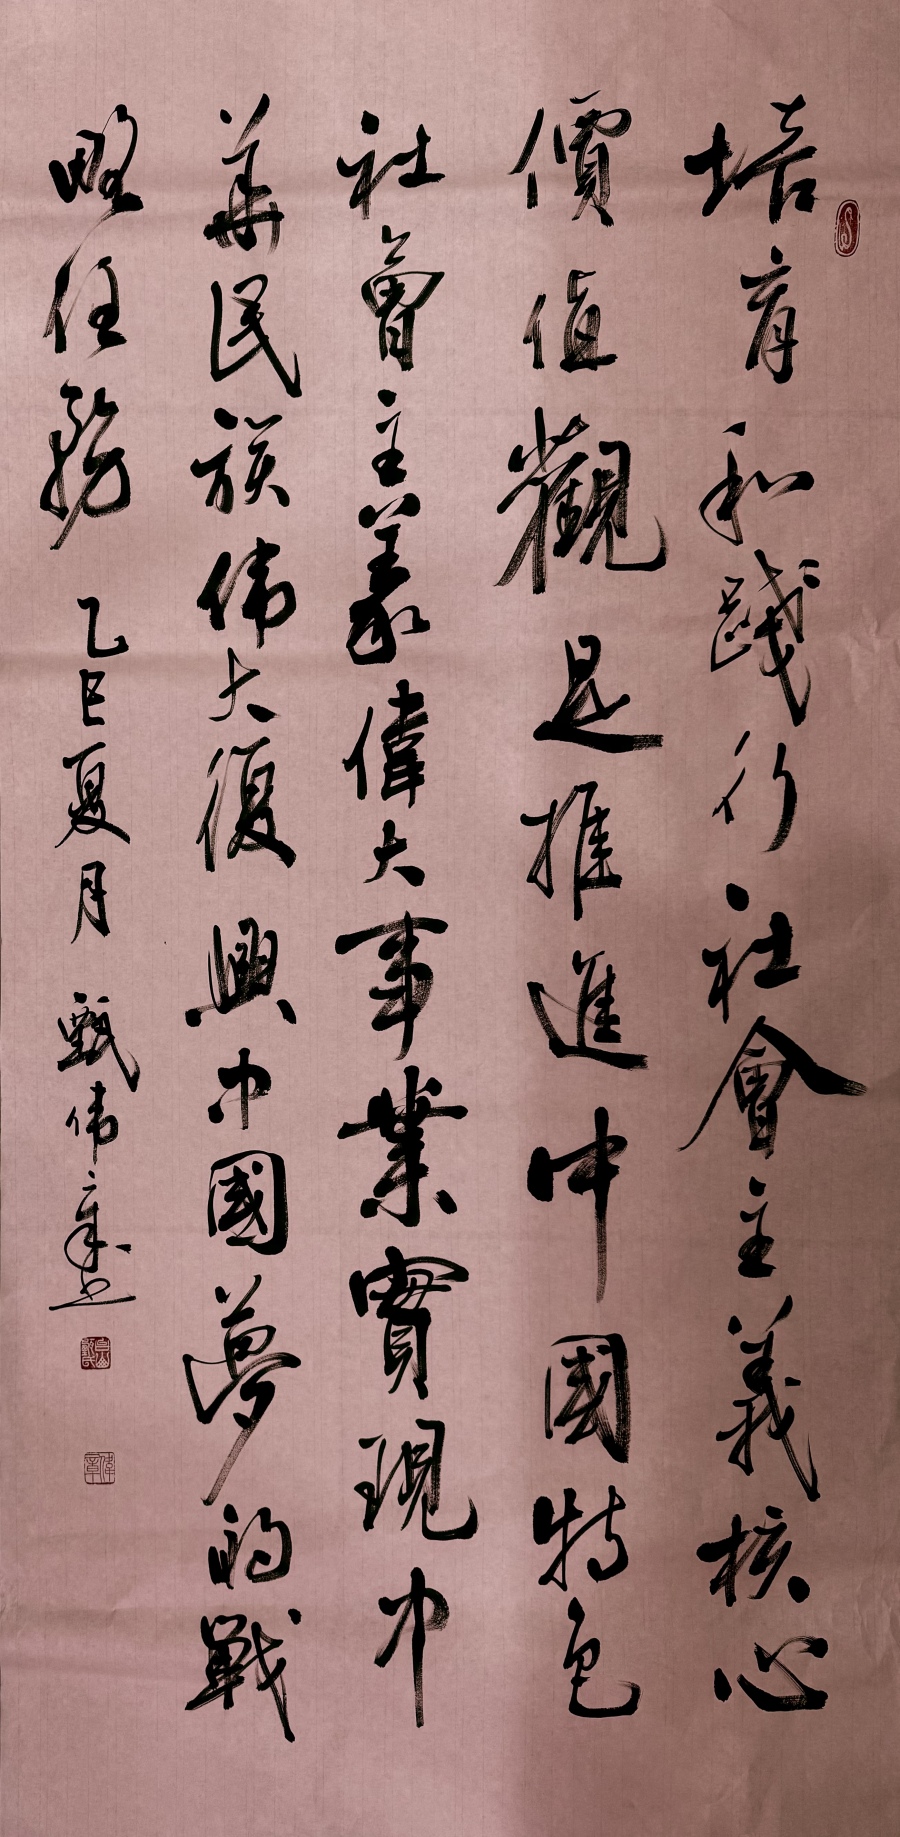 培育和踐行社會主義核心
價值觀是推進中國特色
社會主義偉大事業實現中
華民族伟大復興中國夢的戰
略任務
乙巳夏月 甄伟章书